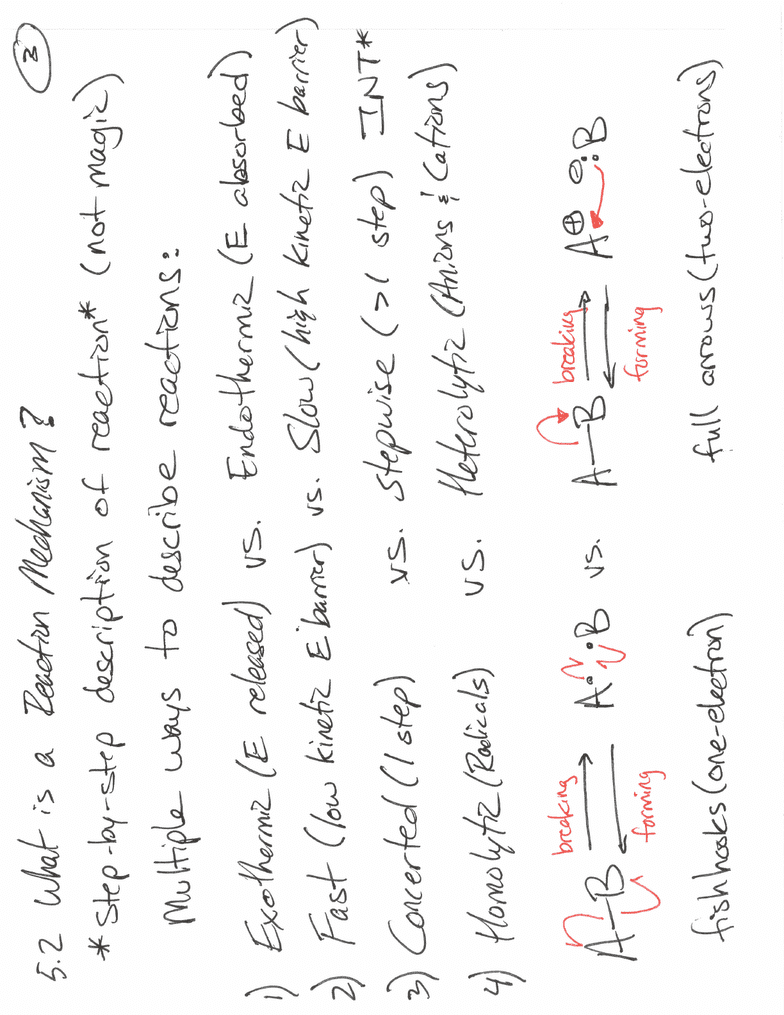 5.2 What is a Reaction Mechanism? 3
* step-by-step description of reaction* (not magic)
Multiple ways to describe reactions:
1) Exothermic (E released) vs. Endothermic (E absorbed)
2) Fast (low kinetic E barrier) vs. Slow (high kinetic E barrier)
3) Concerted (1 step) vs. Stepwise (>1 step) INT*
4) Homolytic (Radicals) vs. Heterolytic (Anions & Cations)
breaking breaking
A–B A· ·B vs. A–B A⊕ ⊖:B
forming forming
fishhooks (one-electron) full arrows (two-electrons)